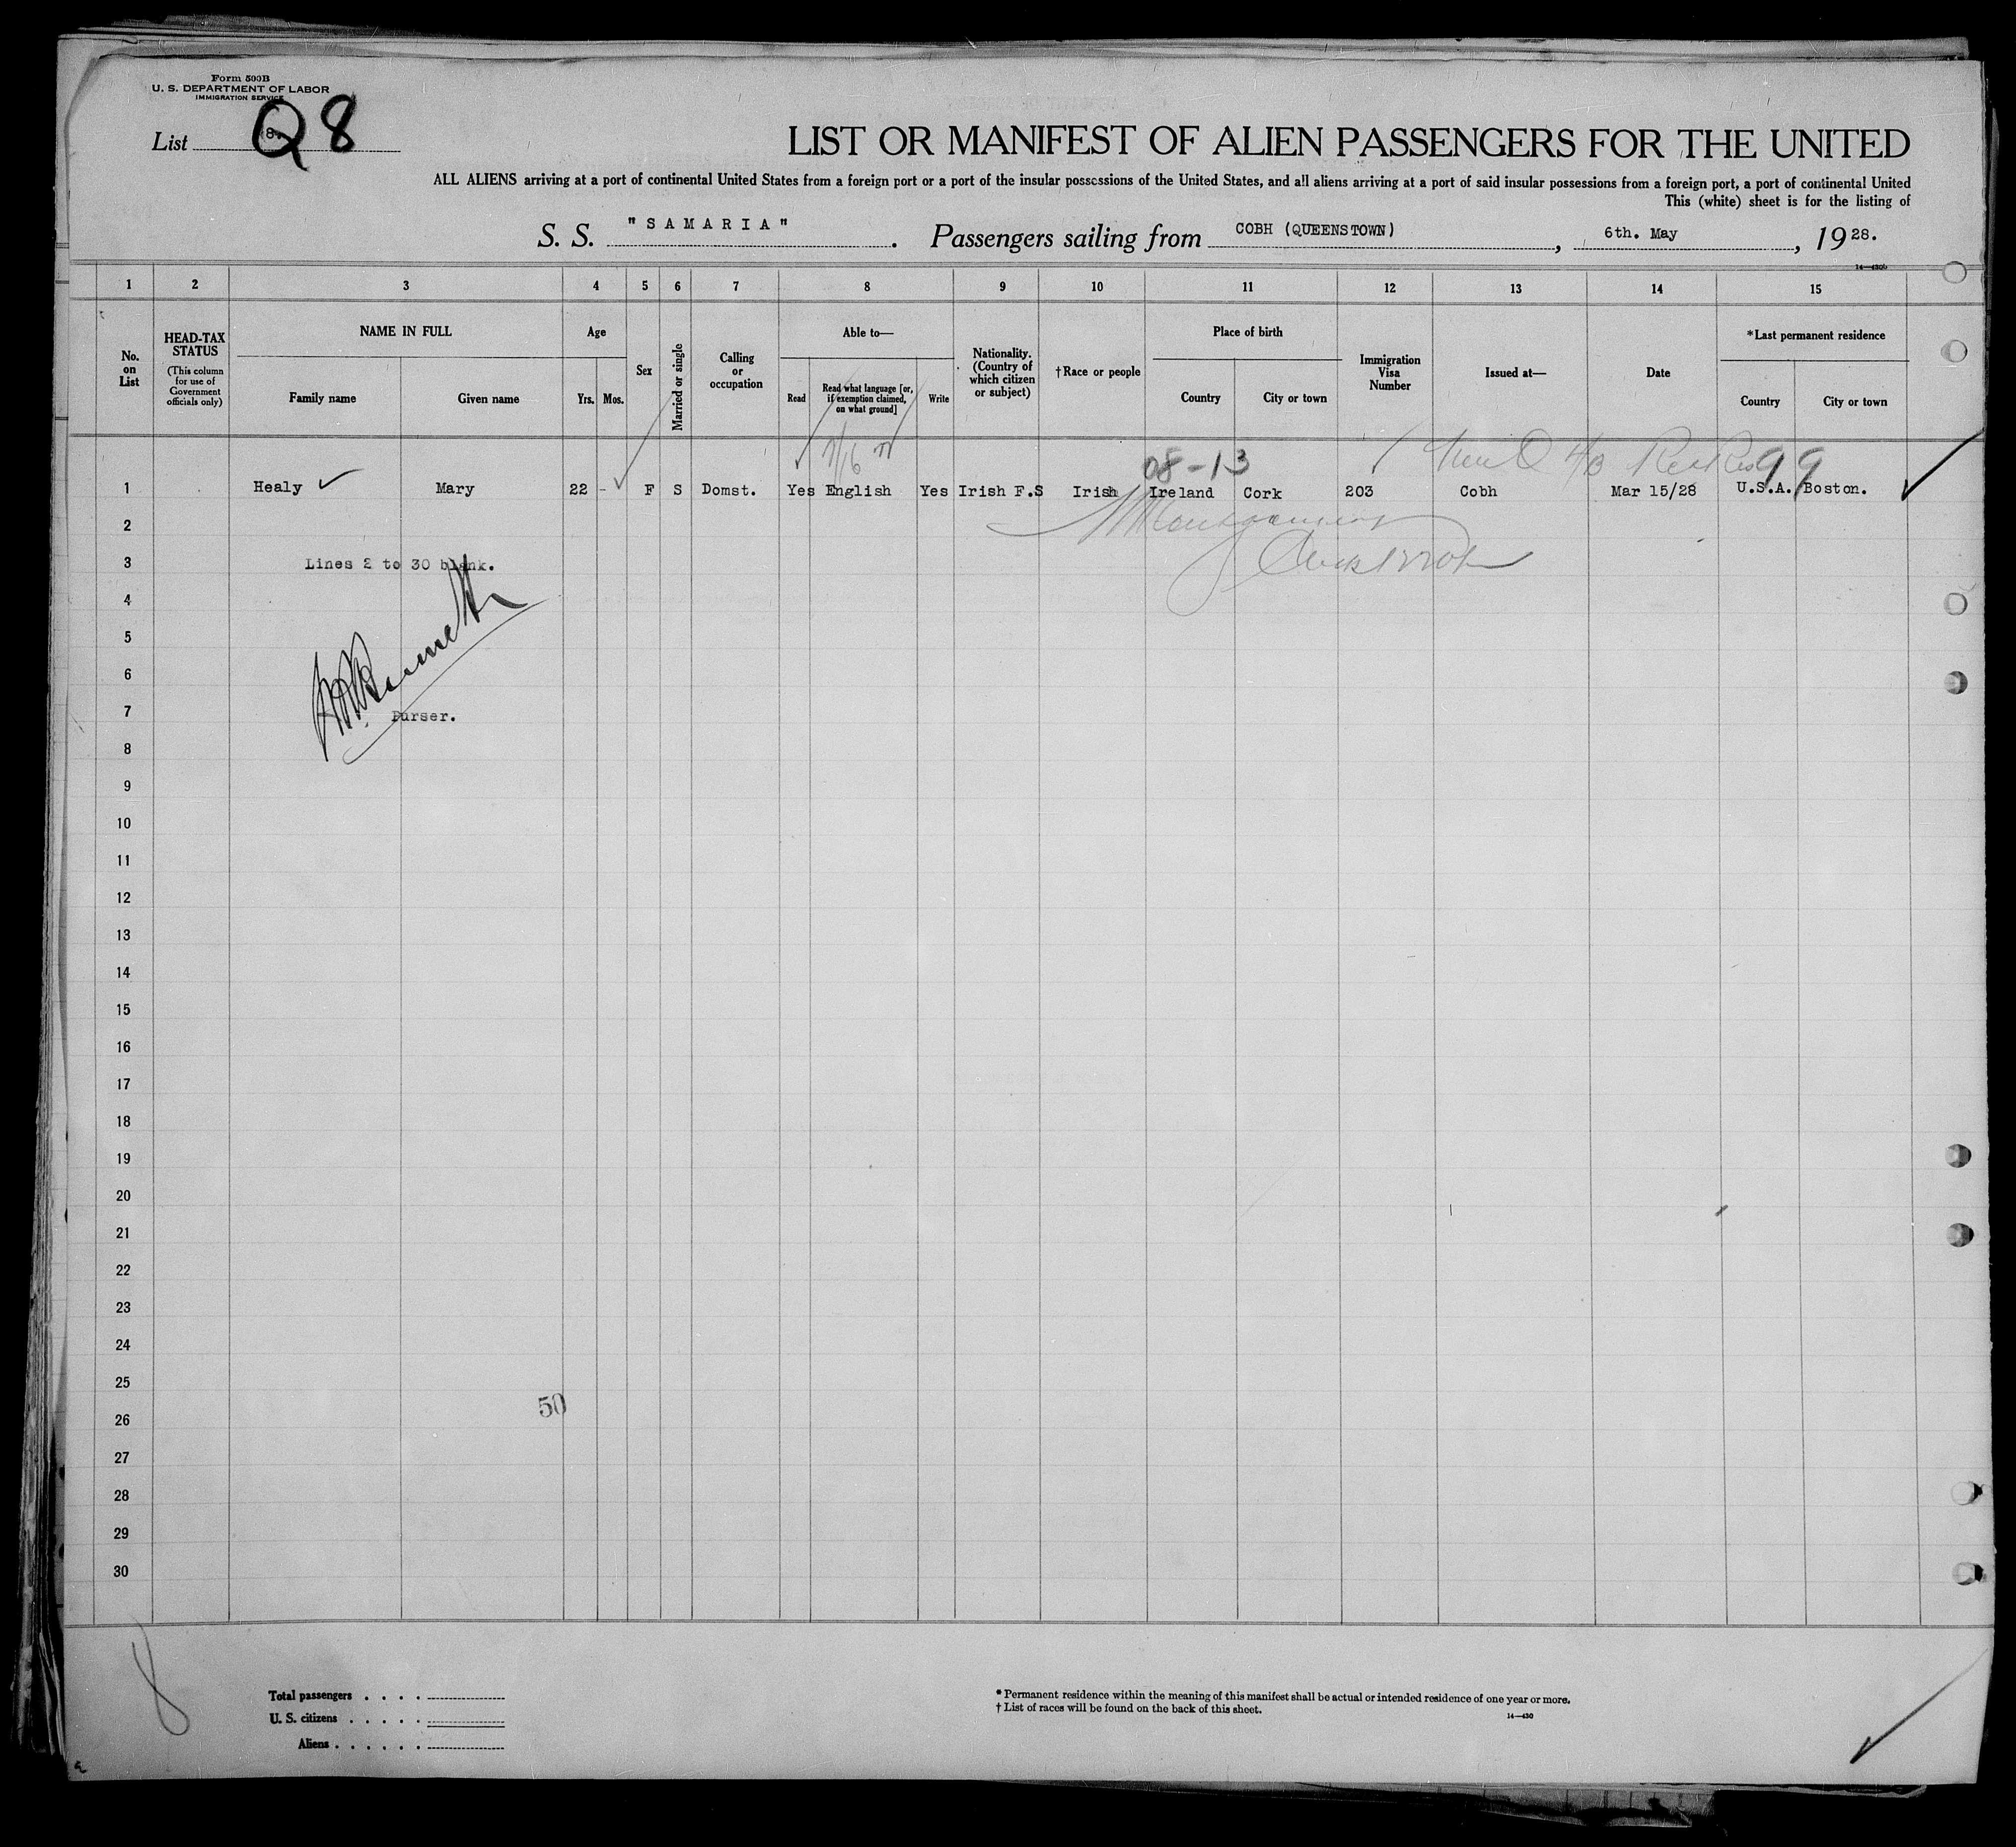 Form 500B
U. S. DEPARTMENT OF LABOR
IMMIGRATION SERVICE
List 8. Q8
LIST OR MANIFEST OF ALIEN PASSENGERS FOR THE UNITED
ALL ALIENS arriving at a port of continental United States from a foreign port or a port of the insular possessions of the United States, and all aliens arriving at a port of said insular possessions from a foreign port, a port of continental United
This (white) sheet is for the listing of
S. S. "SAMARIA". Passengers sailing from COBH (QUEENSTOWN), 6th. May, 1928.
1 2 3 4 5 6 7 8 9 10 11 12 13 14 15
No. on List
HEAD-TAX STATUS
(This column for use of Government officials only)
NAME IN FULL
Family name
Given name
Age
Yrs. Mos.
Sex
Married or single
Calling or occupation
Able to—
Read
Read what language [or, if exemption claimed, on what ground]
Write
Nationality. (Country of which citizen or subject)
†Race or people
Place of birth
Country
City or town
Immigration Visa Number
Issued at—
Date
*Last permanent residence
Country
City or town
08-13 99
1 Healy Mary 22 - F S Domst. Yes English Yes Irish F.S Irish Ireland Cork 203 Cobh Mar 15/28 U.S.A. Boston.
2
3 Lines 2 to 30 blank.
4
5
6
7 Purser.
8
9
10
11
12
13
14
15
16
17
18
19
20
21
22
23
24
25
50
26
27
28
29
30
8
Total passengers
U. S. citizens
Aliens
* Permanent residence within the meaning of this manifest shall be actual or intended residence of one year or more.
† List of races will be found on the back of this sheet.
14—430